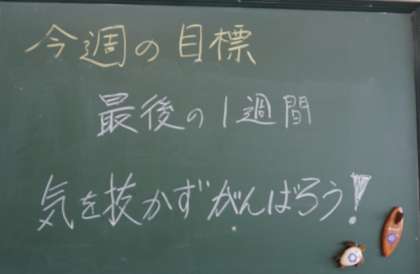 今週の目標
最後の1週間
気を抜かずがんばろう!